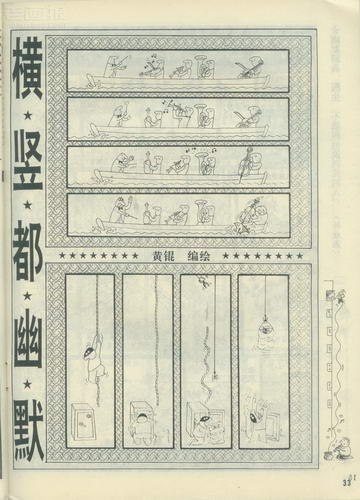 横★竖★都★幽★默
★★★★★★★★ 黄锟 编绘 ★★★★★★★★
33